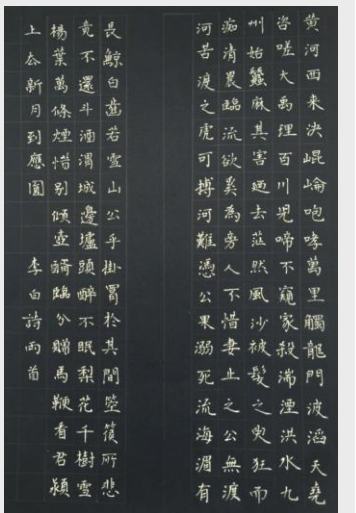 黃河西來決崐崘咆哮萬里觸龍門波滔天堯
咨嗟大禹理百川兒啼不窺家殺湍湮洪水九
州始蠶麻其害迺去茫然風沙被髮之叟狂而
痴清晨臨流欲奚為旁人不惜妻止之公無渡
河苦渡之虎可搏河難憑公果溺死流海湄有
長鯨白齒若雪山公乎掛罥於其間箜篌所悲
竟不還斗酒渭城邊壚頭醉不眠梨花千樹雪
楊葉萬條煙惜別傾壺醑臨分贈馬鞭看君潁
上去新月到應圓　李白詩兩首